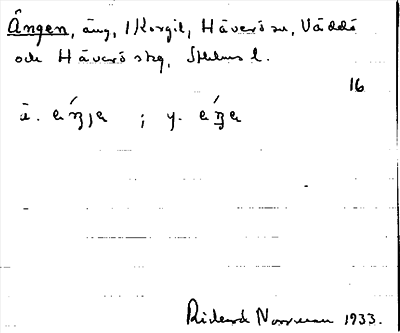 Ängen, äng, 1 Korgil, Häverö sn, Väddö
och Häverö skg, Sthlms l.
16
ä. éŋjɐ ; y. éŋɐ
Rickard Norrman 1933.